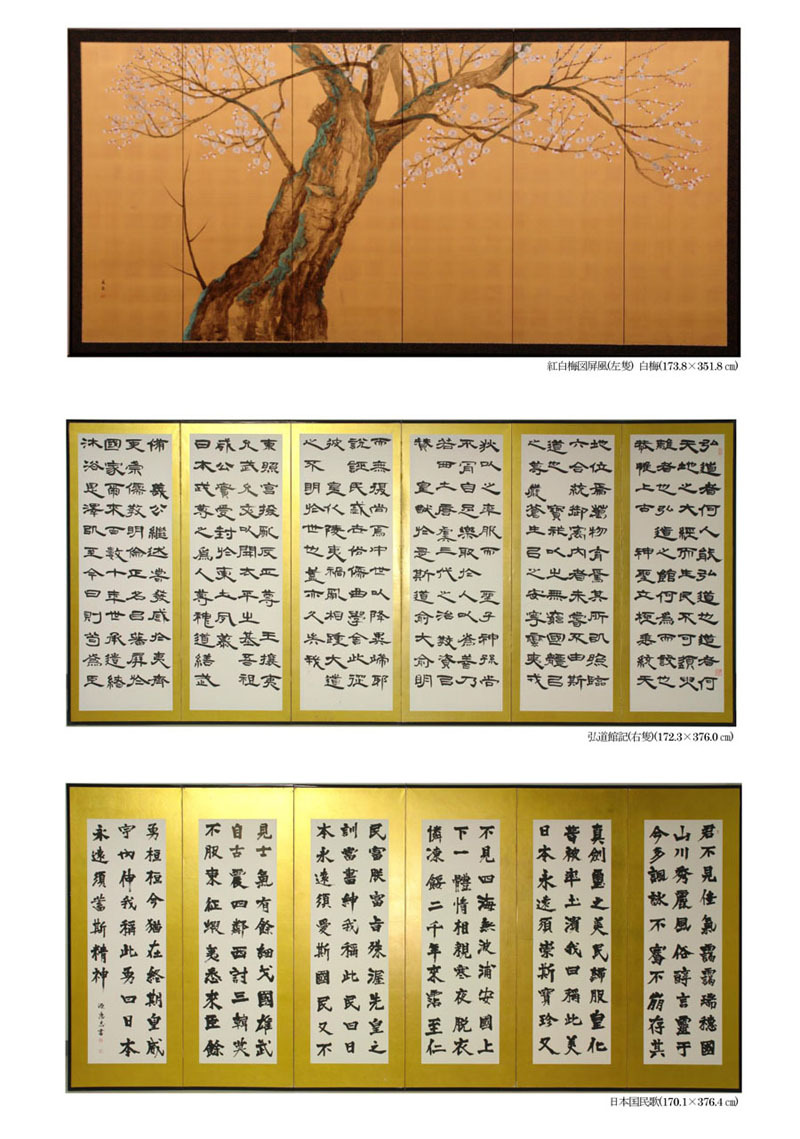 紅白梅図屏風(左隻) 白梅(173.8×351.8㎝)
弘道者何人能弘道也道者何
天地之大經而生民不可須臾
離者也弘道之館何為而設也
恭惟上古 神聖立極垂統天
地位焉萬物育焉其所以照臨
六合統御寓内者未嘗不由斯
道也 寶祚以之無窮國體以
之尊嚴蒼生以之安寧蠻夷戎
狄以之率服而 聖子神孫尚
不肯自足樂取於人以為善乃
若西土唐虞三代之治教資以
賛 皇猷於是斯道愈大愈明
而無復尚焉中世以降異端邪
說誣民惑世俗儒曲學舍此從
彼 皇化陵夷禍亂相踵大道
之不明於世也蓋亦久矣我
東照宮撥亂反正尊 王攘夷
允武允文以開太平之基吾祖
威公實受封於東土夙慕
日本武尊之為人尊神道繕武
備 義公繼述嘗發感於夷齊
更崇儒教明倫正名以藩屏於
國家爾來百數十年世承遺緒
沐浴恩澤以至今日則苟為臣
弘道館記(右隻)(172.3×376.0㎝)
君不見佳氣靄靄瑞穂國
山川秀麗風俗醇言靈于
今多諷詠不騫不崩存其
真劍璽之美民歸服皇化
普被率土濱我曰稱此美
日本永遠須崇斯寶珍又
不見四海無波浦安國上
下一體情相親寒夜脱衣
憐凍餒二千年來霑至仁
民富朕富旨殊渥先皇之
訓當書紳我稱此民曰日
本永遠須愛斯國民又不
見士氣有餘細戈國雄武
自古震四鄰西討三韓
不服東征蝦夷悉來臣餘
勇桓桓今猶在終期皇威
宇内伸我稱此勇曰日本
永遠須當斯精神
日本国民歌(170.1×376.4㎝)